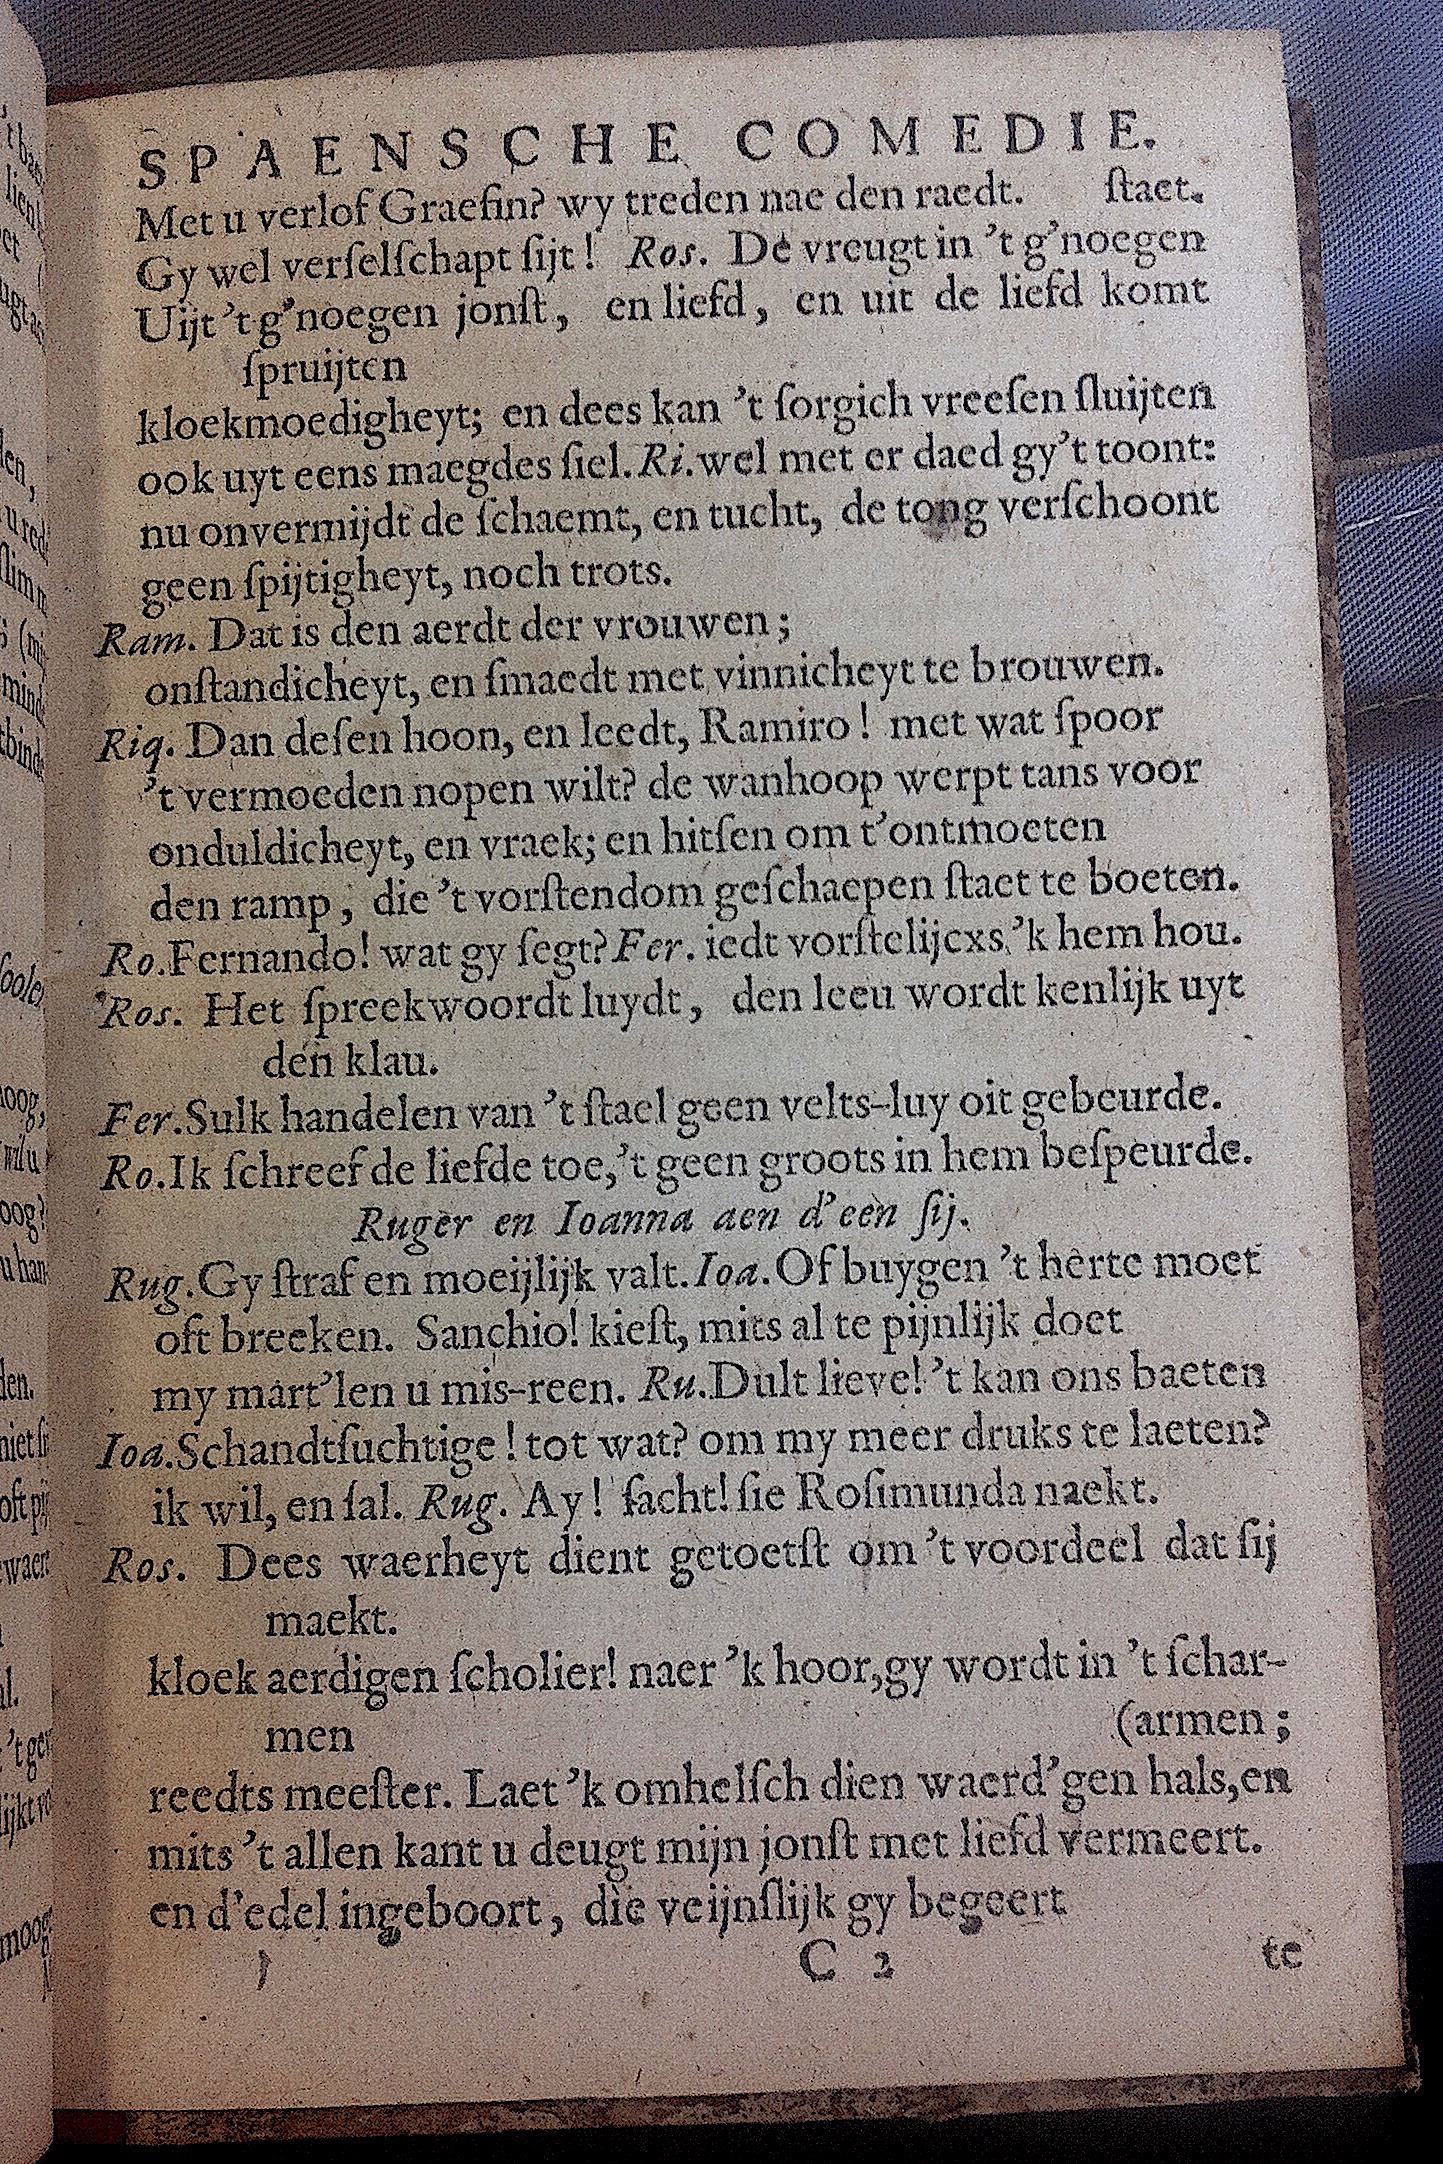 SPAENSCHE COMEDIE.
Met u verlof Graefin? wy treden nae den raedt. ſtaet.
Gy wel verſelſchapt ſijt! Ros. De vreugt in ’t g’noegen
Uijt ’t g’noegen jonſt, en liefd, en uit de liefd komt
ſpruijten
kloekmoedigheyt; en dees kan ’t ſorgich vreeſen ſluijten
ook uyt eens maegdes ſiel. Ri. wel met er daed gy’t toont:
nu onvermijdt de ſchaemt, en tucht, de tong verſchoont
geen ſpijtigheyt, noch trots.
Ram. Dat is den aerdt der vrouwen;
onſtandicheyt, en ſmaedt met vinnicheyt te brouwen.
Riq. Dan deſen hoon, en leedt, Ramiro! met wat ſpoor
’t vermoeden nopen wilt? de wanhoop werpt tans voor
onduldicheyt, en vraek; en hitſen om t’ontmoeten
den ramp, die ’t vorſtendom geſchaepen ſtaet te boeten.
Ro. Fernando! wat gy ſegt? Fer. iedt vorſtelijcxs ’k hem hou.
Ros. Het ſpreekwoordt luydt, den leeu wordt kenlijk uyt
den klau.
Fer. Sulk handelen van ’t ſtael geen velts-luy oit gebeurde.
Ro. Ik ſchreef de liefde toe, ’t geen groots in hem beſpeurde.
Ruger en Ioanna aen d’een ſij.
Rug. Gy ſtraf en moeijlijk valt. Ioa. Of buygen ’t herte moet
oft breeken. Sanchio! kieſt, mits al te pijnlijk doet
my mart’len u mis-reen. Ru. Dult lieve! ’t kan ons baeten
Ioa. Schandtſuchtige! tot wat? om my meer druks te laeten?
ik wil, en ſal. Rug. Ay! ſacht! ſie Roſimunda naekt.
Ros. Dees waerheyt dient getoetſt om ’t voordeel dat ſij
maekt.
kloek aerdigen ſcholier! naer ’k hoor, gy wordt in ’t ſchar-
men (armen;
reedts meeſter. Laet ’k omhelſch dien waerd’gen hals, en
mits ’t allen kant u deugt mijn jonſt met liefd vermeert.
en d’edel ingeboort, die veijnſlijk gy begeert
C 2 te